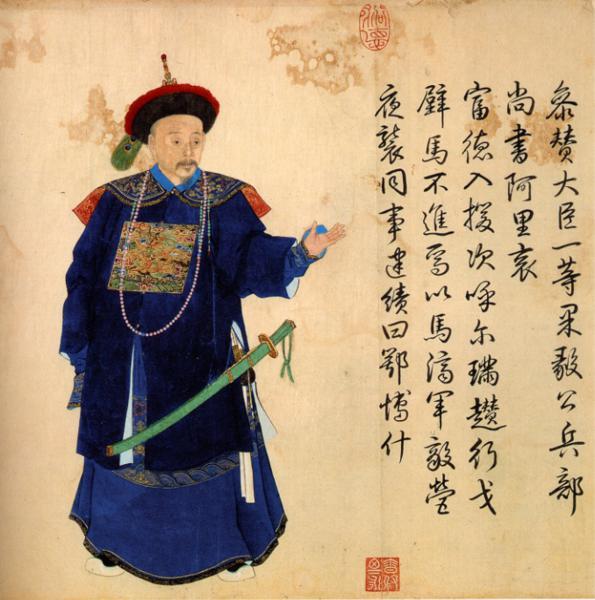 叅贊大臣一等果毅公兵部
尚書阿里衮
富德入援次呼尔璊趲行戈
壁馬不進焉以馬濟軍敵營
夜襲同事建績曰鄂愽什